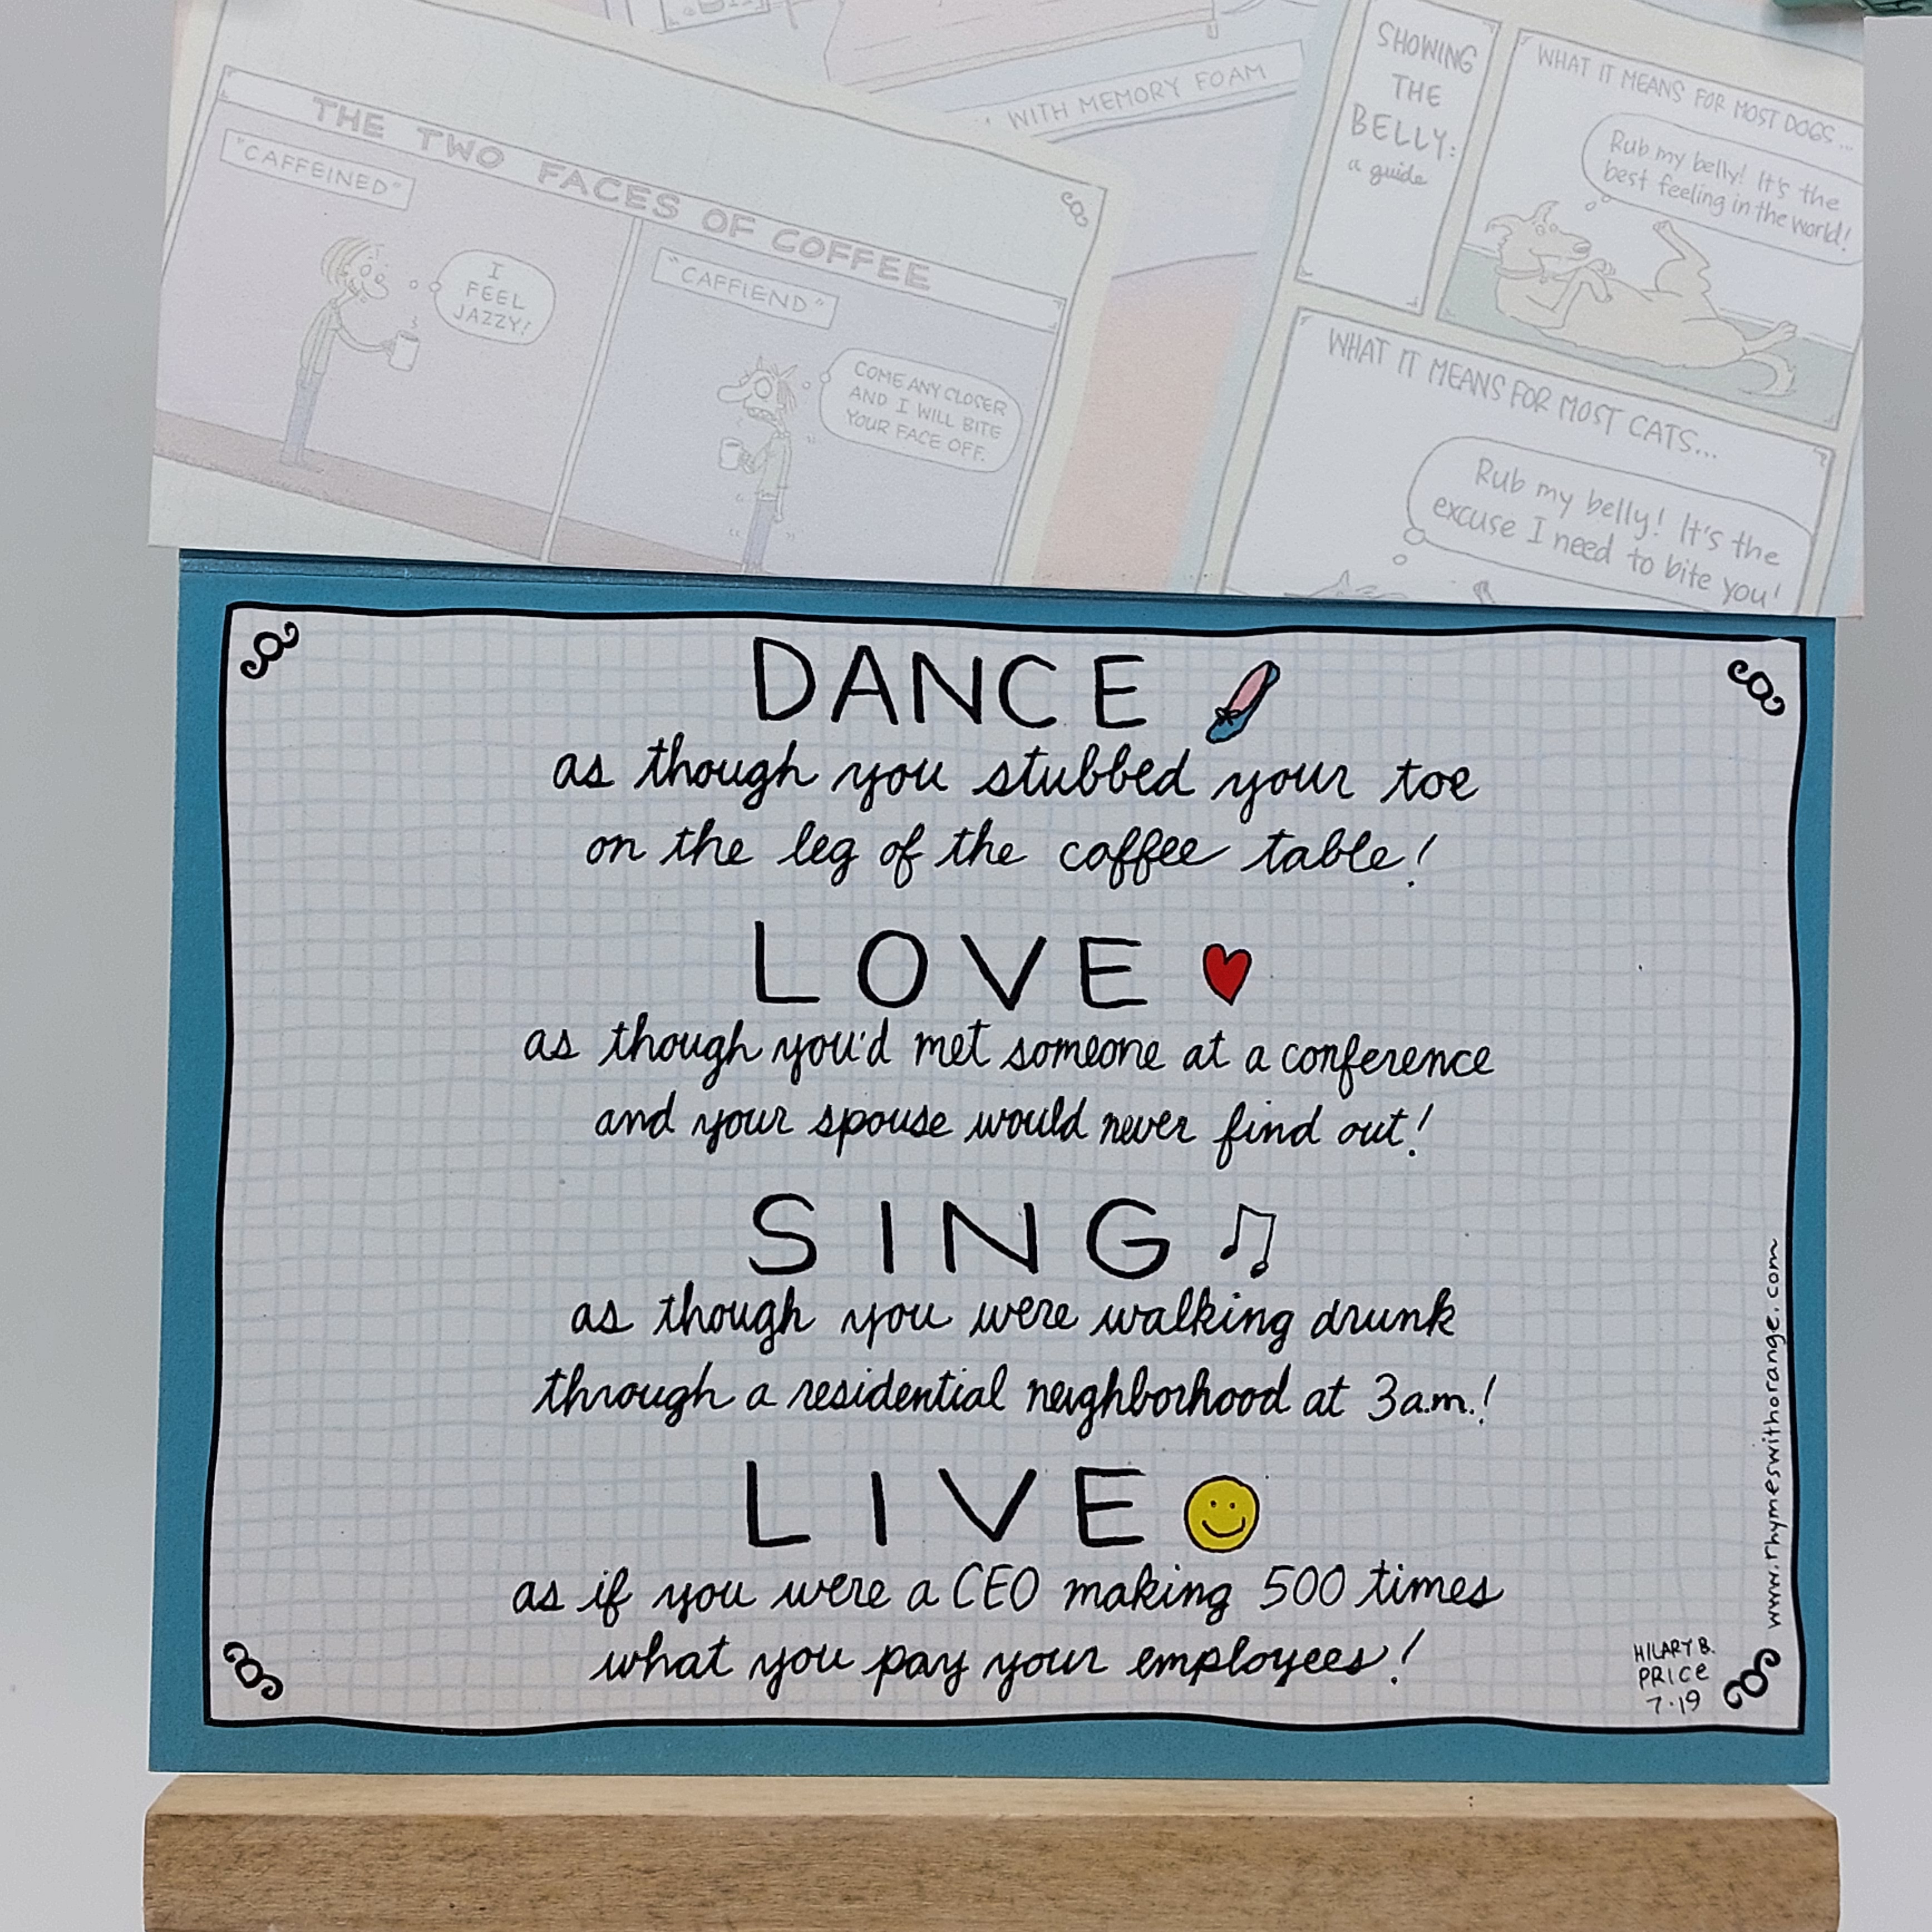 WITH MEMORY FOAM
THE TWO FACES OF COFFEE
"CAFFEINED"
I
FEEL
JAZZY!
"CAFFIEND"
COME ANY CLOSER
AND I WILL BITE
YOUR FACE OFF.
SHOWING
THE
BELLY:
a guide
WHAT IT MEANS FOR MOST DOGS...
Rub my belly! It's the
best feeling in the world!
WHAT IT MEANS FOR MOST CATS...
Rub my belly! It's the
excuse I need to bite you!
DANCE
as though you stubbed your toe
on the leg of the coffee table!
LOVE
as though you'd met someone at a conference
and your spouse would never find out!
SING
as though you were walking drunk
through a residential neighborhood at 3a.m.!
LIVE
as if you were a CEO making 500 times
what you pay your employees!
www.rhymeswithorange.com
HILARY B.
PRICE
7.19